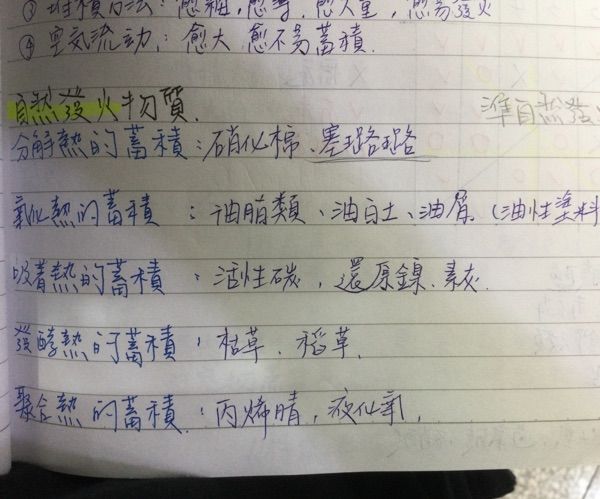 ③ 堆積方法：愈細，愈等，愈大量，愈易發火
④ 空氣流動：愈大 愈不易蓄積.
自然發火物質.
準自然發
分解熱的蓄積：硝化棉、塞璐璐
氧化熱的蓄積：油脂類、油白土、油屑.(油性塗料
吸着熱的蓄積：活性碳，還原鎳.素灰.
發酵熱的蓄積：枯草、稻草.
聚合熱的蓄積：丙烯腈，液化氰，